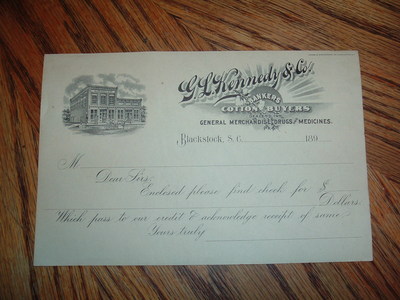 G. L. Kennedy & Co.
BANKERS
COTTON BUYERS
DEALERS IN
GENERAL MERCHANDISE, DRUGS and MEDICINES.
Blackstock, S. C. 189
M
Dear Sirs,
Enclosed please find check for $
Dollars
Which pass to our credit & acknowledge receipt of same.
Yours truly